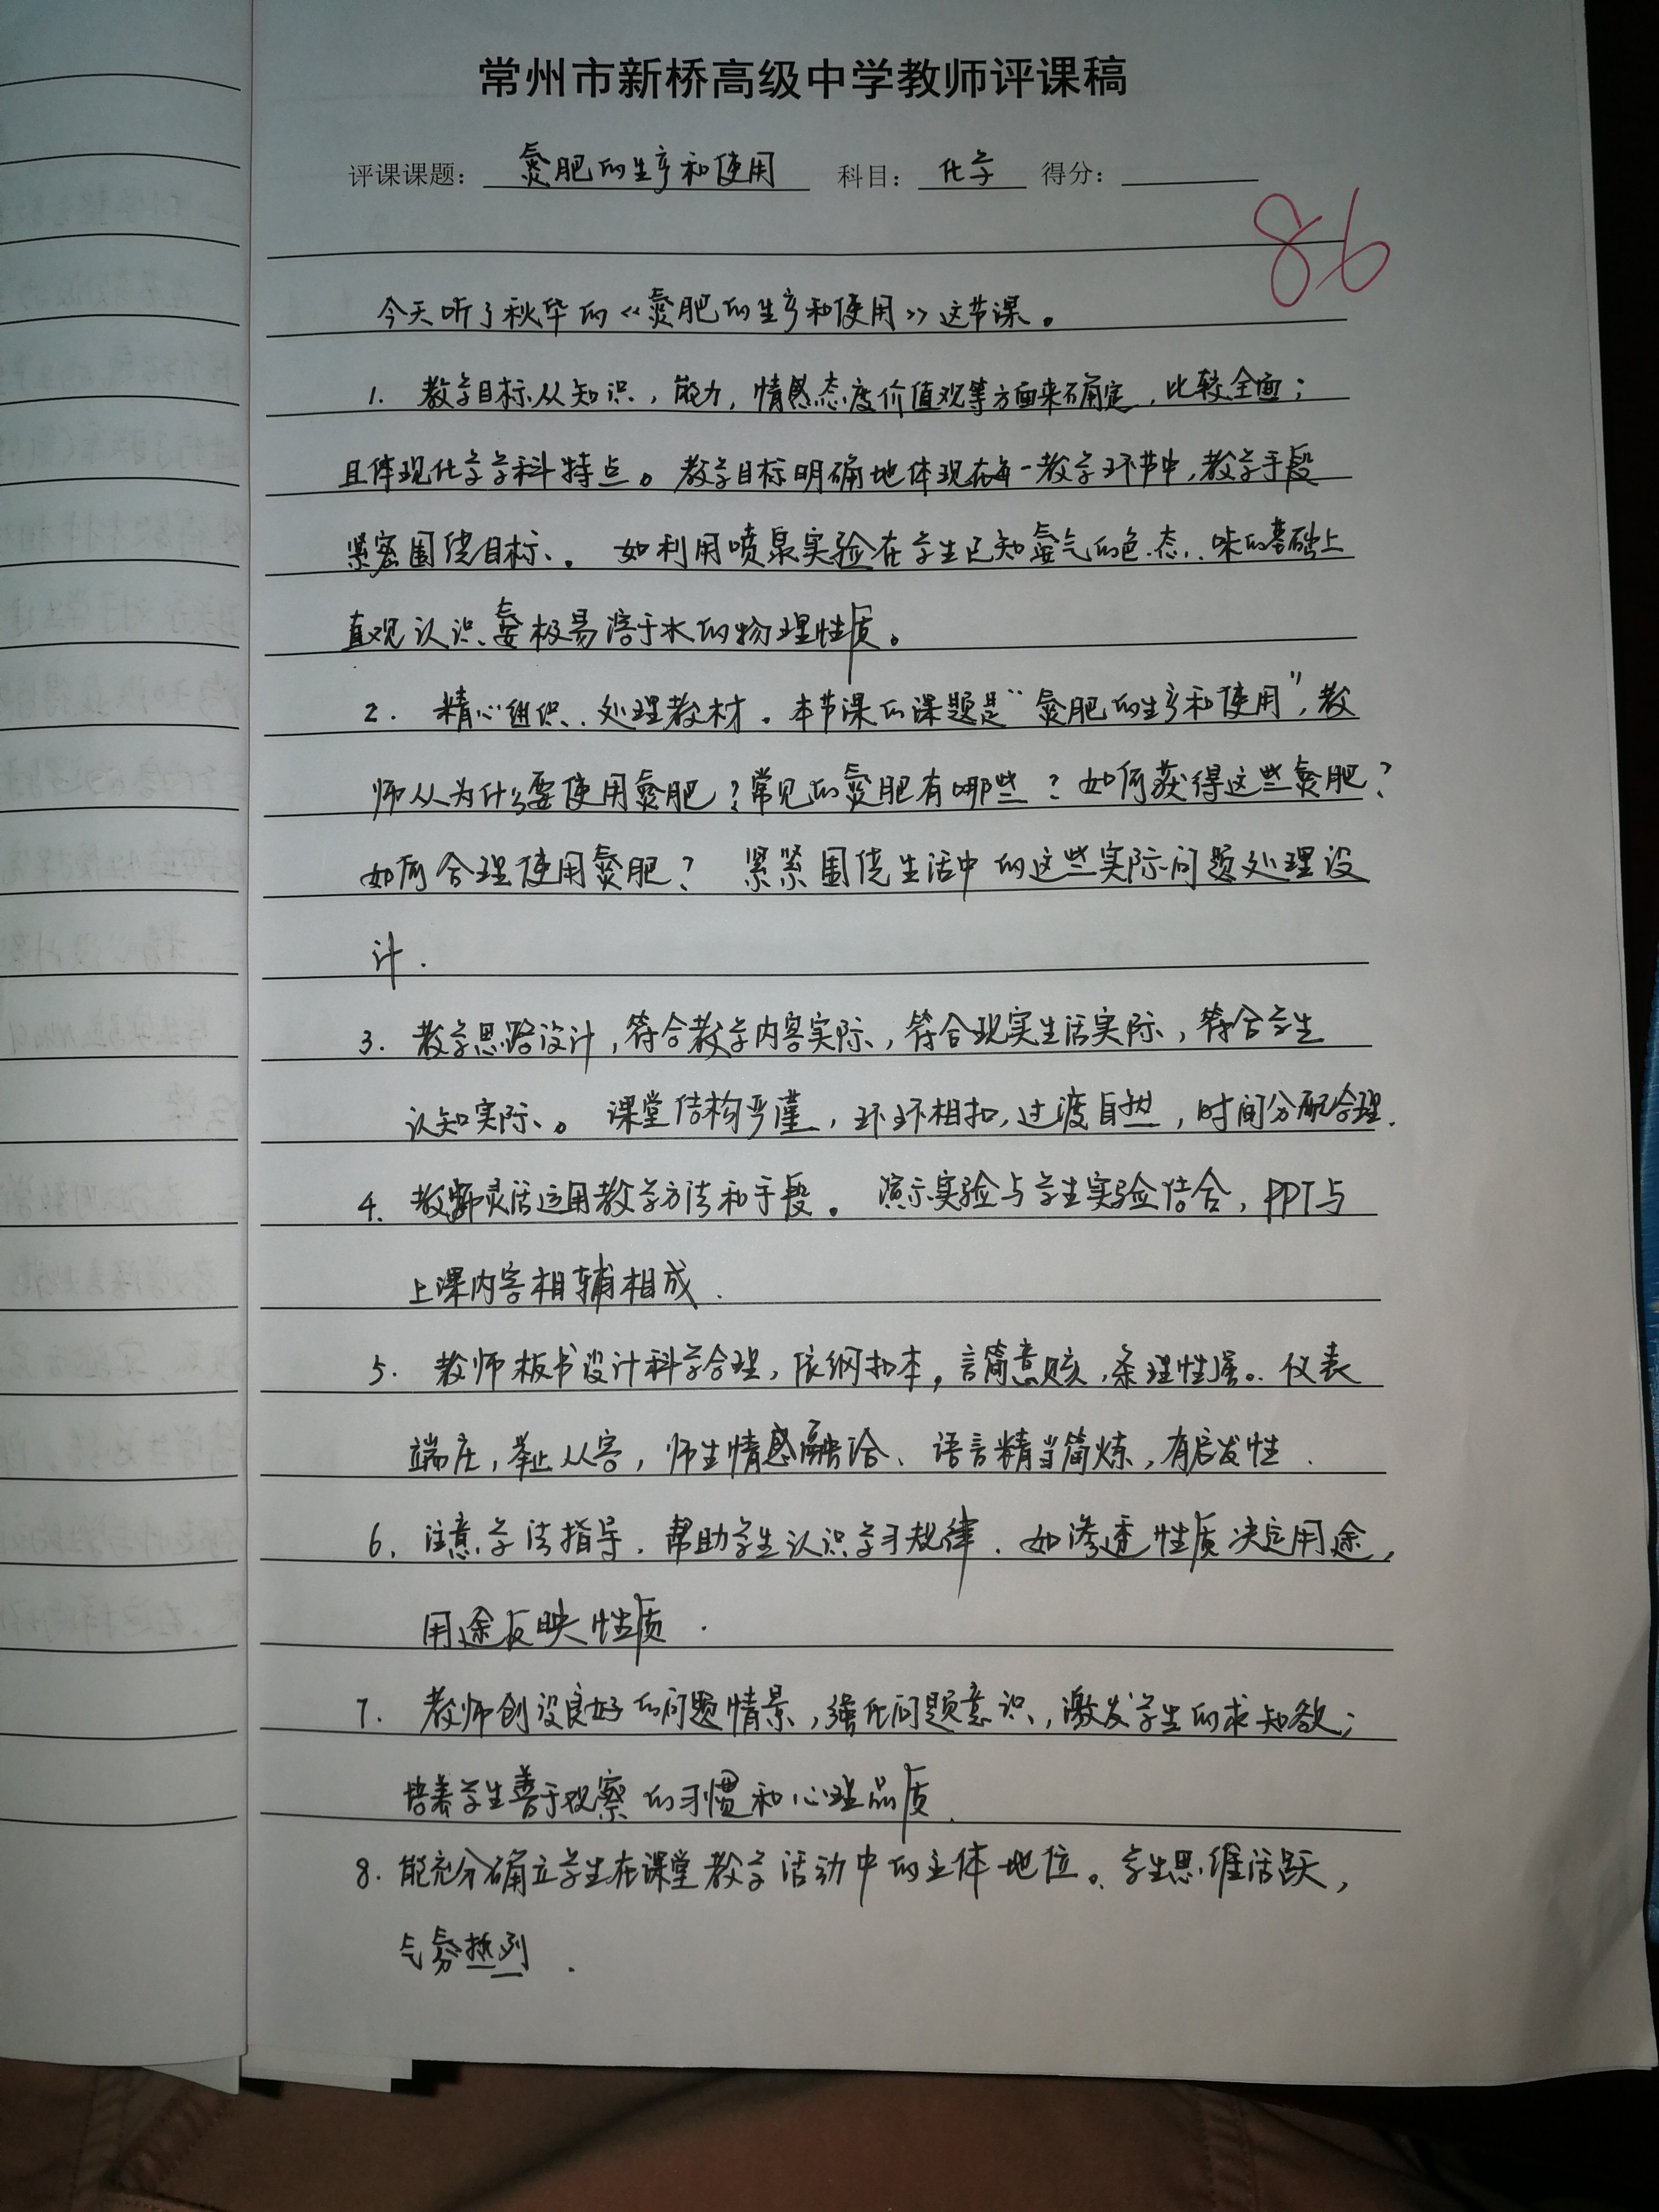 常州市新桥高级中学教师评课稿
评课课题：氮肥的生产和使用 科目：化学 得分：
86
今天听了秋华的《氮肥的生产和使用》这节课。
1. 教学目标从知识，能力，情感态度价值观等方面来确定，比较全面；
且体现化学学科特点。教学目标明确地体现在每一教学环节中，教学手段
紧密围绕目标、。如利用喷泉实验在学生已知氨气的色.态..味的基础上
直观认识氨极易溶于水的物理性质。
2. 精心组织、处理教材。本节课的课题是“氮肥的生产和使用”，教
师从为什么要使用氮肥？常见的氮肥有哪些？如何获得这些氮肥？
如何合理使用氮肥？ 紧紧围绕生活中的这些实际问题处理设
计.
3. 教学思路设计，符合教学内容实际，符合现实生活实际，符合学生
认知实际。课堂结构严谨，环环相扣，过渡自然，时间分配合理.
4. 教师灵活运用教学方法和手段。演示实验与学生实验结合，PPT与
上课内容相辅相成.
5. 教师板书设计科学合理，依纲扣本，言简意赅，条理性强。仪表
端庄，举止从容，师生情感融洽、语言精当简炼，有启发性.
6. 注意学法指导.帮助学生认识学习规律.如渗透性质决定用途，
用途反映性质.
7. 教师创设良好的问题情景，强化问题意识，激发学生的求知欲；
培养学生善于观察的习惯和心理品质.
8. 能充分确立学生在课堂教学活动中的主体地位。学生思维活跃，
气氛热列.